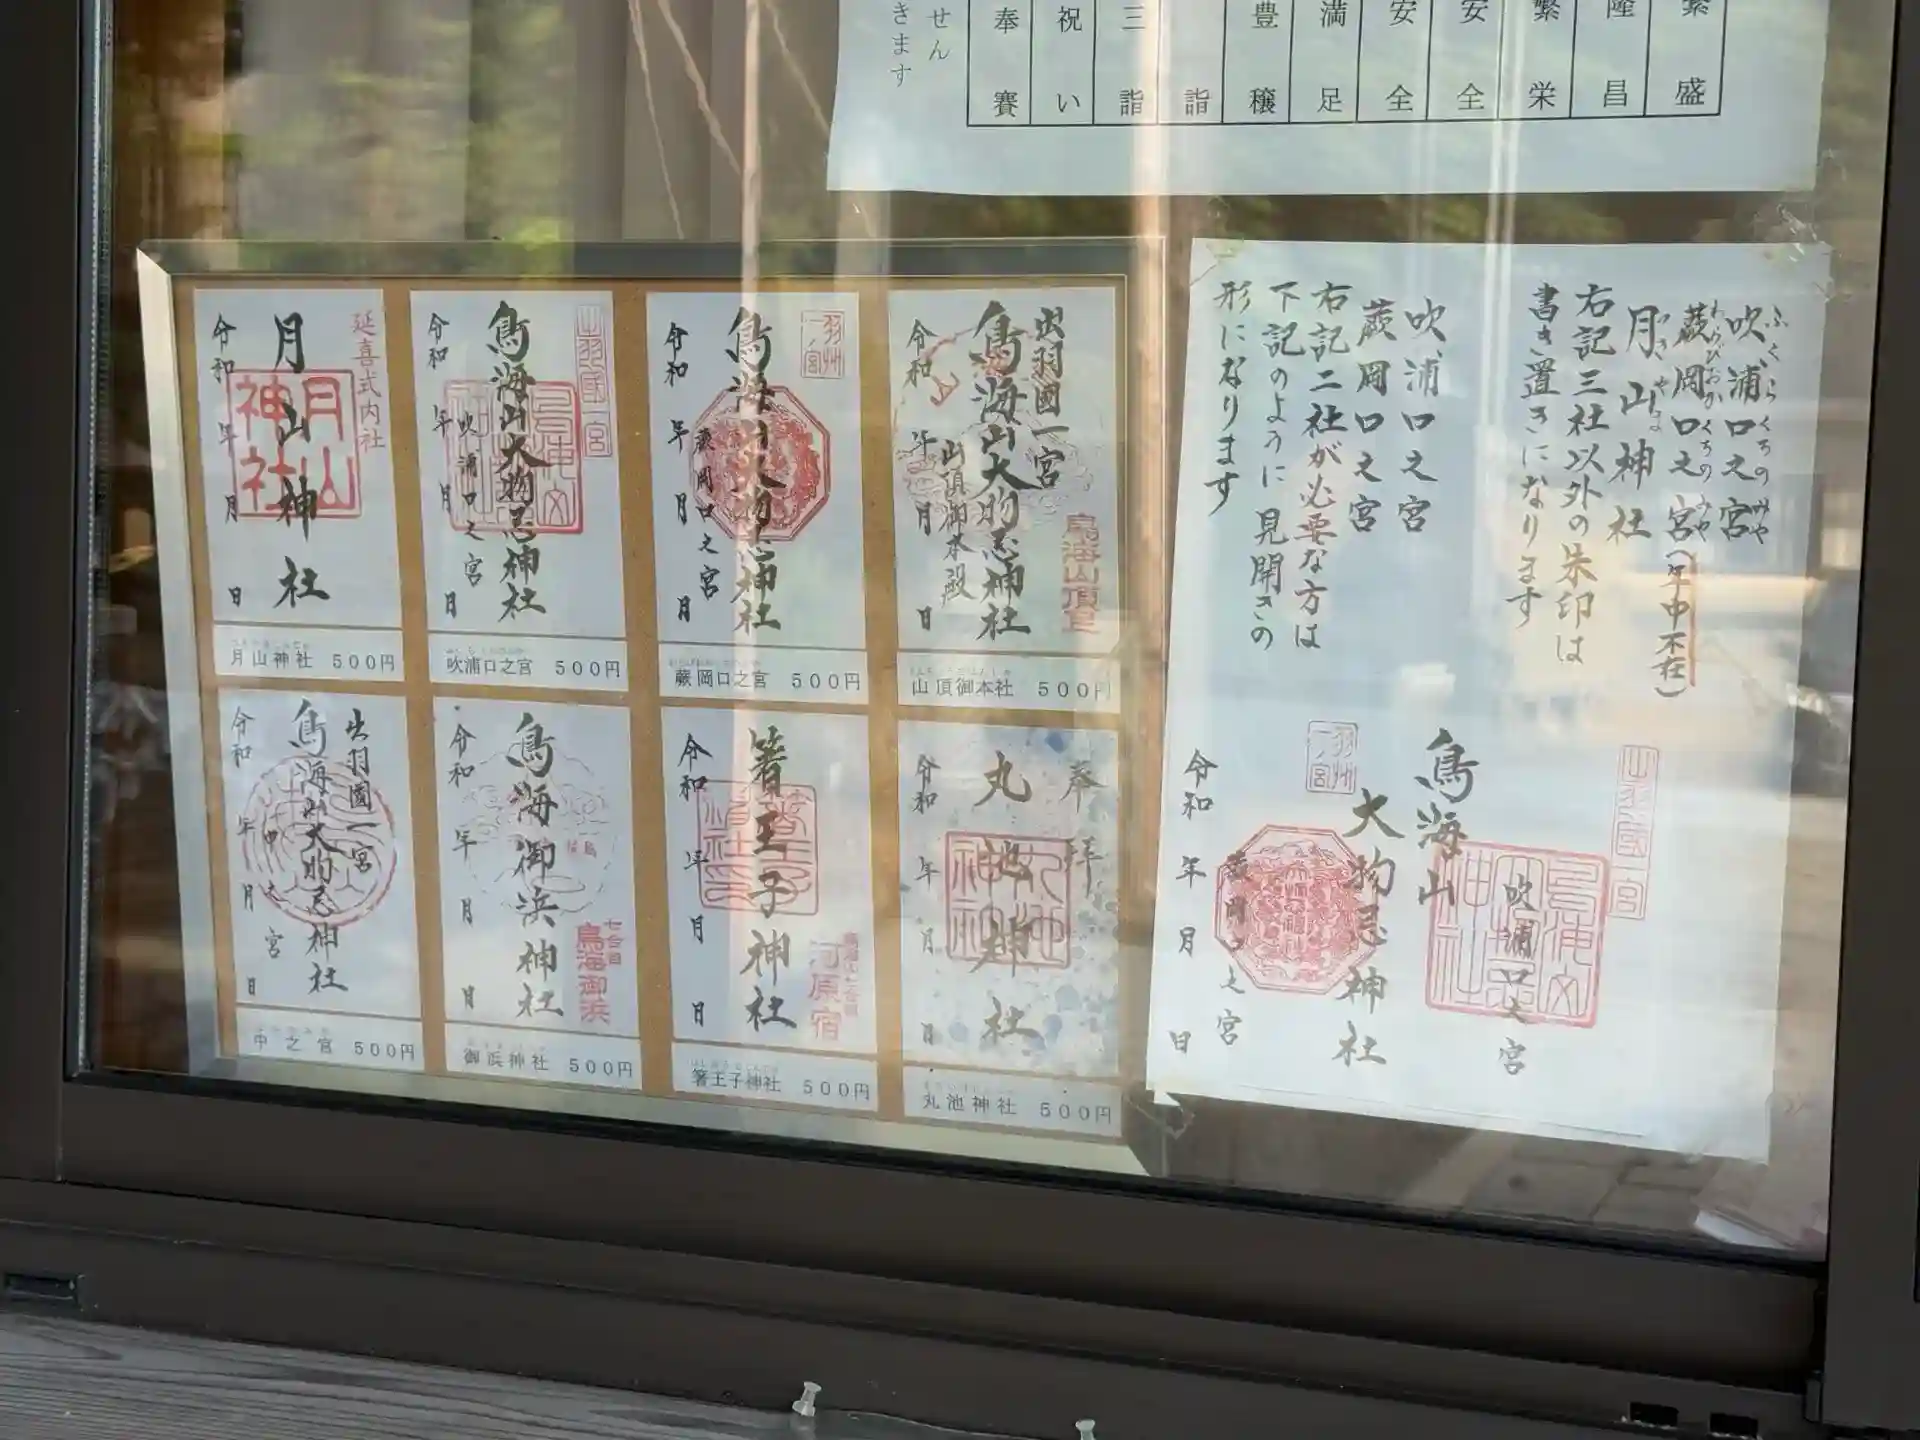 繁盛
隆昌
繁栄
安全
安全
満足
豊穣
詣
三詣
祝い
奉賽
せん
きます
吹浦口之宮
ふくらくちのみや
蕨岡口之宮(年中不在)
わらびおかくちのみや
月山神社
右記三社以外の朱印は
書き置きになります
吹浦口之宮
蕨岡口之宮
右記二社が必要な方は
下記のように見開きの
形になります
出羽國一宮
鳥海山
吹浦口之宮
大物忌神社
羽州一宮
蕨岡口之宮
令和 年 月 日
出羽國一宮
鳥海山大物忌神社
山頂御本殿
令和 年 月 日
山頂御本社 500円
羽州一宮
鳥海山大物忌神社
蕨岡口之宮
令和 年 月 日
蕨岡口之宮 500円
出羽國一宮
鳥海山大物忌神社
吹浦口之宮
令和 年 月 日
吹浦口之宮 500円
延喜式内社
月山神社
月山神社
令和 年 月 日
月山神社 500円
奉拝
丸池神社
令和 年 月 日
丸池神社 500円
箸王子神社
河原宿
令和 年 月 日
箸王子神社 500円
鳥海御浜神社
七合目
鳥海御浜
令和 年 月 日
御浜神社 500円
出羽國一宮
鳥海山大物忌神社
中之宮
令和 年 月 日
中之宮 500円